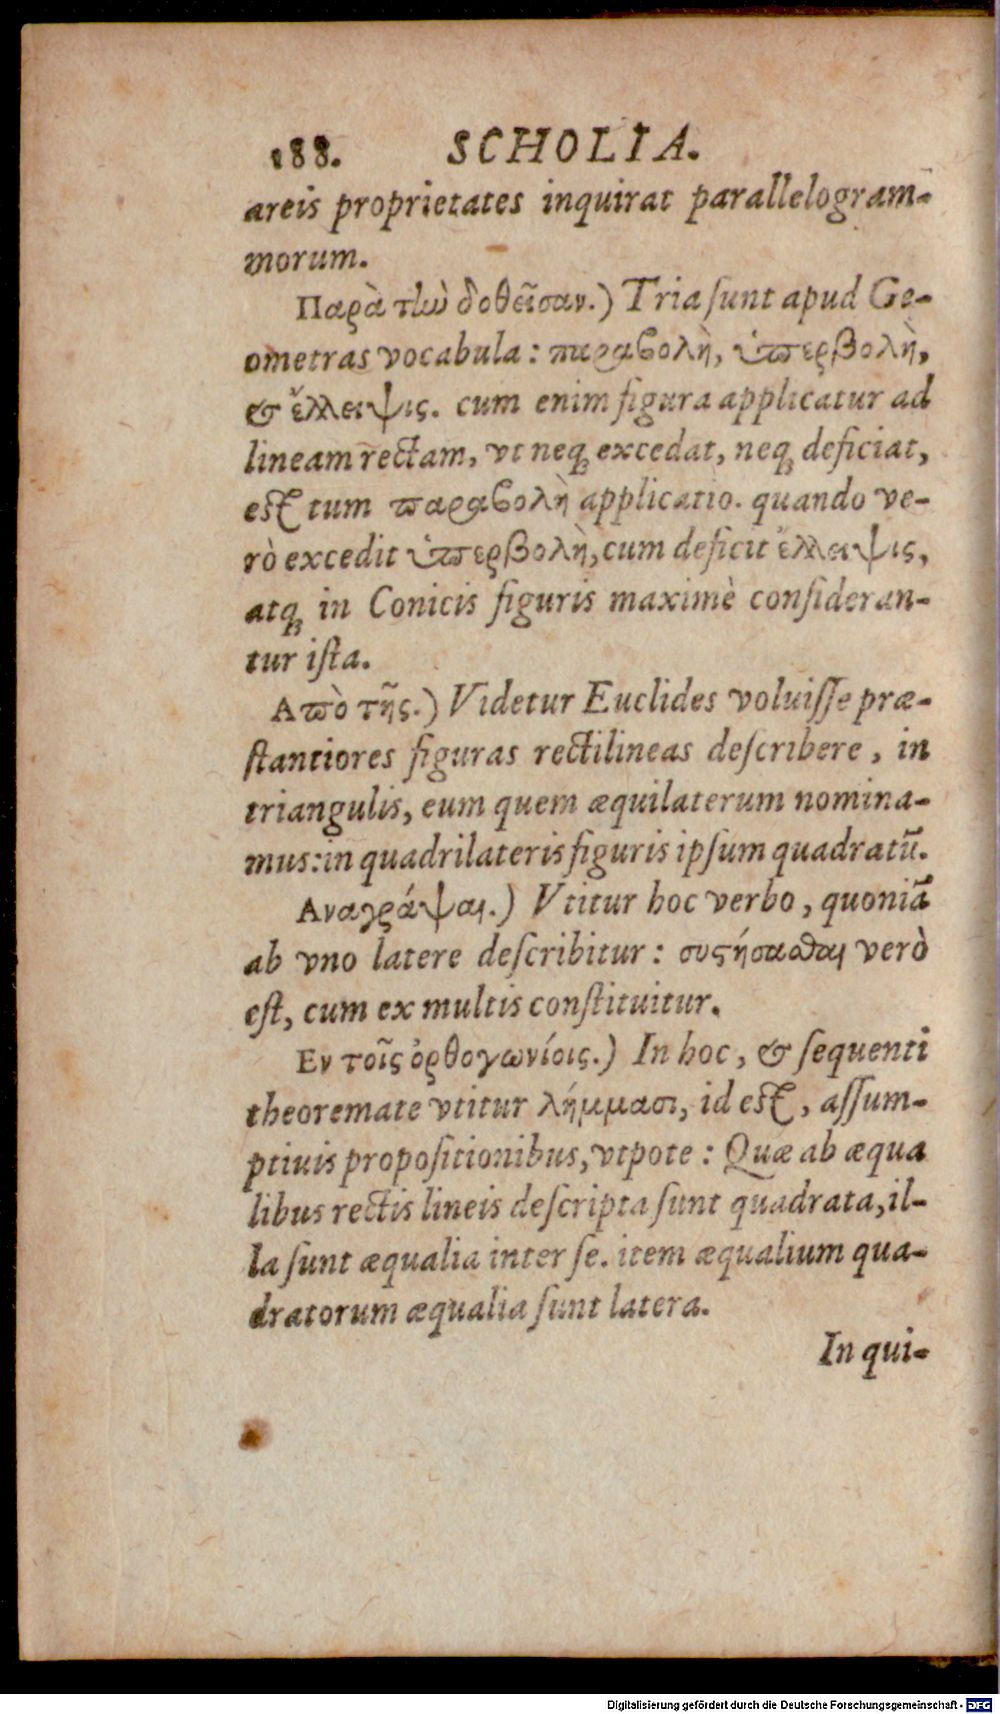 188. SCHOLIA.
areis proprietates inquirat parallelogram-
morum.
Παρὰ τὼ δοθεῖσαν.) Tria ſunt apud Ge-
ometras vocabula: παραβολὴ, ὑπερβολὴ,
& ἔλλειψις. cum enim figura applicatur ad
lineam rectam, vt neq; excedat, neq; deficiat,
eſt tum παραβολὴ applicatio. quando ve-
rò excedit ὑπερβολὴ, cum deficit ἔλλειψις,
atq; in Conicis figuris maximè conſideran-
tur iſta.
Απὸ τῆς.) Videtur Euclides voluiſſe præ-
ſtantiores figuras rectilineas deſcribere, in
triangulis, eum quem æquilaterum nomina-
mus: in quadrilateris figuris ipſum quadratū.
Αναγράψαι.) Vtitur hoc verbo, quoniā
ab vno latere deſcribitur: συςήσασθαι verò
eſt, cum ex multis conſtituitur.
Εν τοῖς ὀρθογωνίοις.) In hoc, & ſequenti
theoremate vtitur λήμμασι, id eſt, aſſum-
ptiuis propoſitionibus, vtpote: Quæ ab æqua
libus rectis lineis deſcripta ſunt quadrata, il-
la ſunt æqualia inter ſe. item æqualium qua-
dratorum æqualia ſunt latera.
In qui-
Digitalisierung gefördert durch die Deutsche Forschungsgemeinschaft - DFG